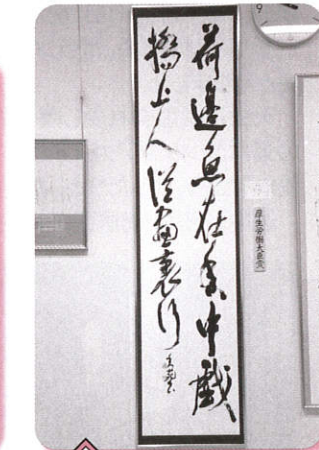 荷邊魚在香中戲
橋上人從畫裏行
厚生労働大臣賞
9